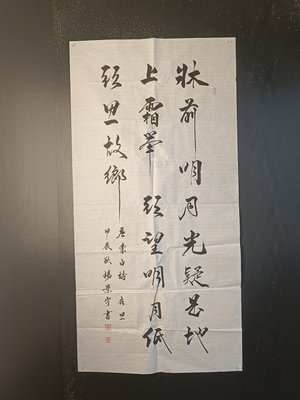 牀前明月光疑是地
上霜舉頭望明月低
頭思故鄉
唐李白詩夜思
甲辰秋楊景書